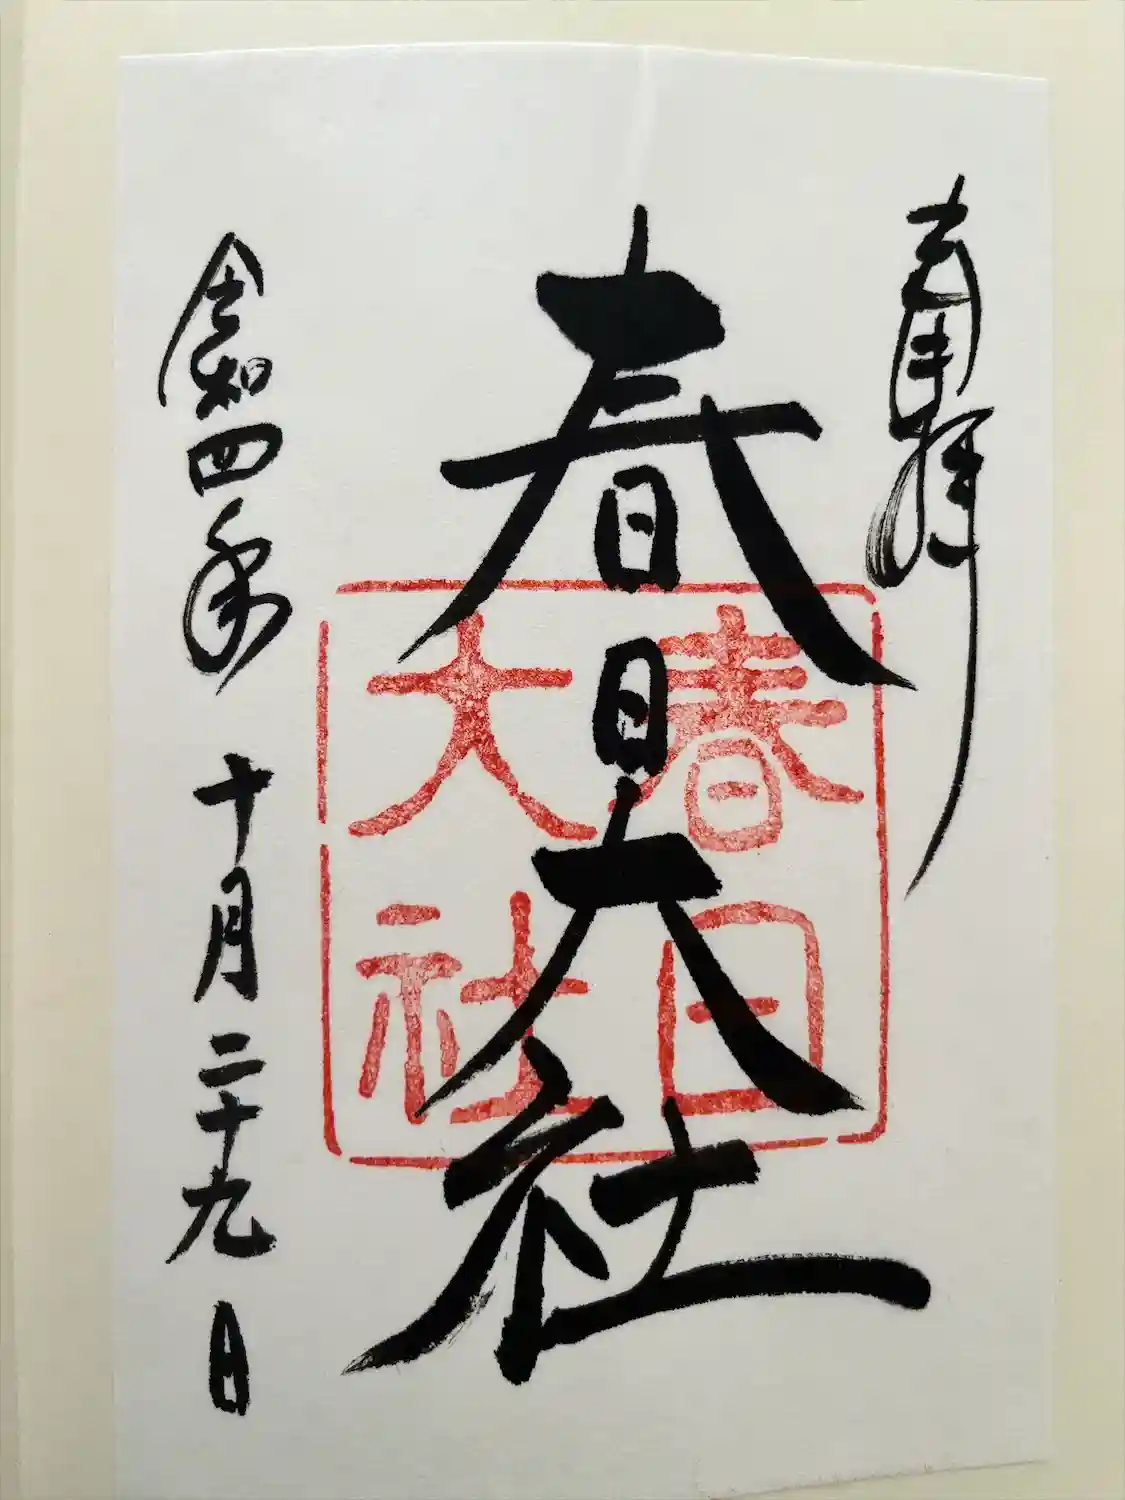 奉拝
春日大社
春日
大社
令和四年十月二十九日